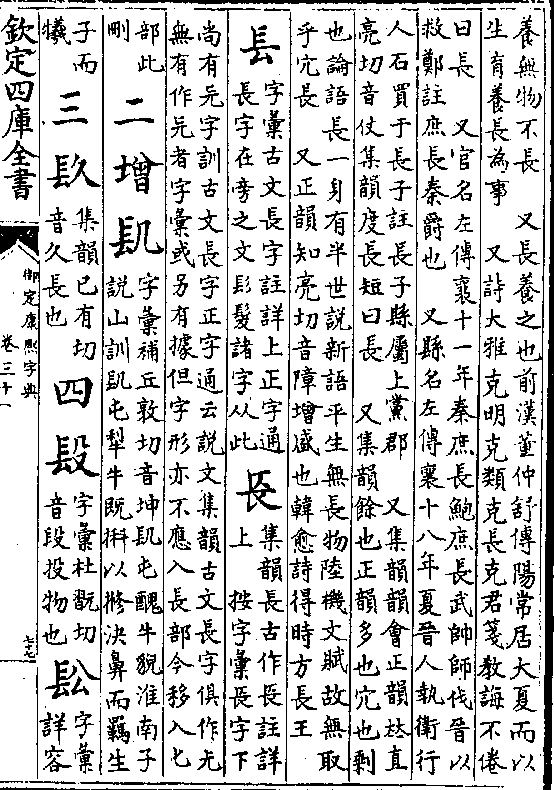 養無物不長　又長養之也前漢董仲舒傳陽常居大夏而以
生育養長為事　又詩大雅克明克類克長克君箋教誨不倦
曰長　又官名左傳襄十一年秦庶長鮑庶長武帥師伐晉以
救鄭註庶長秦爵也　又縣名左傳襄十八年夏晉人執衛行
人石買于長子註長子縣屬上黨郡　又集韻韻會正韻𠀤直
亮切音仗集韻度長短曰長　又集韻餘也正韻多也冗也剩
也論語長一身有半世說新語平生無長物陸機文賦故無取
乎冗長　又正韻知亮切音障增盛也韓愈詩得時方長王
镸
字彙古文長字註詳上正字通
長字在旁之文髟髮諸字从此
集韻長古作註詳
上　按字彙镸字下
尚有字訓古文長字正字通云說文集韻古文長字俱作
無有作者字彙或另有據但字形亦不應入長部今移入匕
部此
刪
二增
字彙補丘敦切音坤屯醜牛貌淮南子
說山訓屯犁牛既以決鼻而羈生
子而
犧
三镹
集韻已有切
音久長也
四
字彙杜翫切
音段投物也
字彙
詳容
欽定四庫全書
御定康熙字典
卷三十一